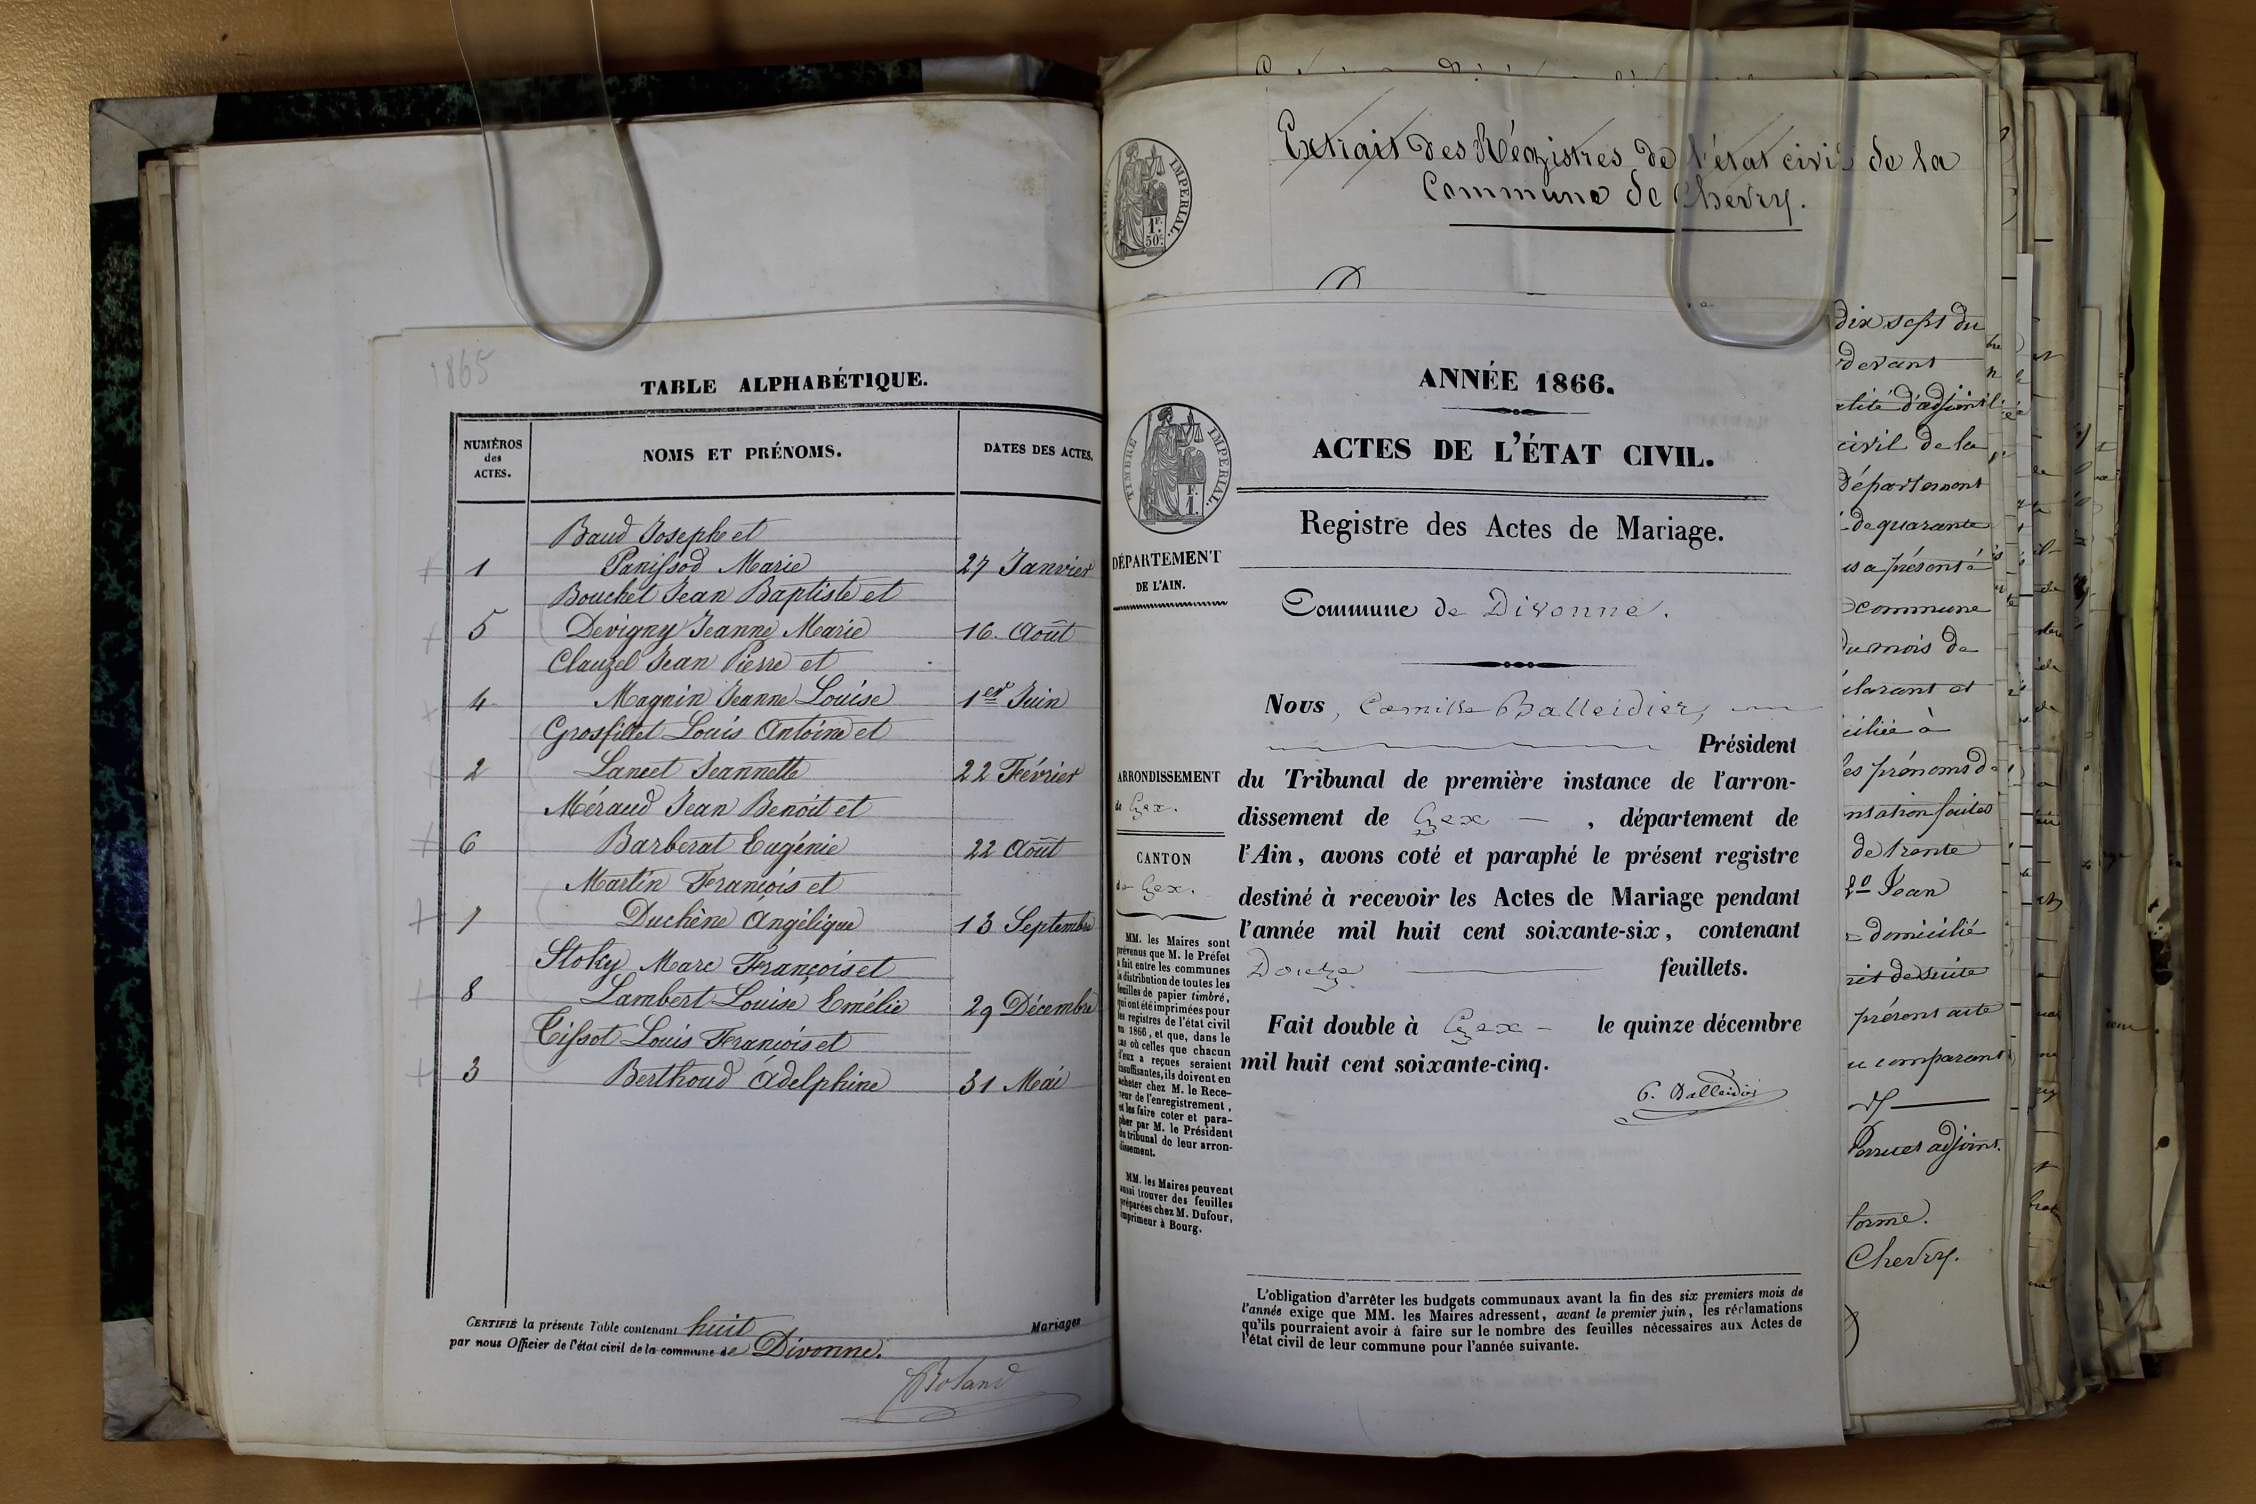 1865
TABLE ALPHABÉTIQUE.
NUMÉROS
des
ACTES.
NOMS ET PRÉNOMS.
DATES DES ACTES.
Baud Joseph et
1 Panissod Marie 27 Janvier
Bouchet Jean Baptiste et
5 Devigny Jeanne Marie 16 Août
Clauzel Jean Pierre et
4 Magnin Jeanne Louise 1er Juin
Grosfillet Louis Antoine et
2 Lancet Jeannette 22 Février
Méraud Jean Benoit et
6 Barberat Eugénie 22 Août
Martin François et
7 Duchêne Angélique 13 Septembre
Stoky Marc François et
8 Lambert Louise Emélie 29 Décembre
Tissot Louis François et
3 Berthoud Adelphine 31 Mai
CERTIFIÉ la présente Table contenant huit Mariages
par nous Officier de l'état civil de la commune de Divonne.
Roland
Extrait des Régistres de l'état civil de la
Commune de Chevry.
TIMBRE IMPERIAL.
1F.
50c
ANNÉE 1866.
ACTES DE L'ÉTAT CIVIL.
TIMBRE IMPERIAL.
F.
1.
Registre des Actes de Mariage.
DÉPARTEMENT
DE L'AIN.
Commune de Divonne.
Nous, Camille Balleidier,
Président
du Tribunal de première instance de l'arron-
dissement de Gex, département de
l'Ain, avons coté et paraphé le présent registre
destiné à recevoir les Actes de Mariage pendant
l'année mil huit cent soixante-six, contenant
Douze feuillets.
Fait double à Gex le quinze décembre
mil huit cent soixante-cinq.
C. Balleidier
ARRONDISSEMENT
de Gex.
CANTON
de Gex.
MM. les Maires sont
prévenus que M. le Préfet
a fait entre les communes
la distribution de toutes les
feuilles de papier timbré,
qui ont été imprimées pour
les registres de l'état civil
en 1866, et que, dans le
cas où celles que chacun
d'eux a reçues seraient
insuffisantes, ils doivent en
acheter chez M. le Rece-
veur de l'enregistrement,
et les faire coter et para-
pher par M. le Président
du tribunal de leur arron-
dissement.
MM. les Maires peuvent
aussi trouver des feuilles
préparées chez M. Dufour,
imprimeur à Bourg.
L'obligation d'arrêter les budgets communaux avant la fin des six premiers mois de
l'année exige que MM. les Maires adressent, avant le premier juin, les réclamations
qu'ils pourraient avoir à faire sur le nombre des feuilles nécessaires aux Actes de
l'état civil de leur commune pour l'année suivante.
dix sept du
devant
civil de la
Département
de quarante
a présenté
commune
du mois de
et
à
prénoms
de trente
2o Jean
domicilié
de suite
présent acte
comparant
adjoint.
Chevry.